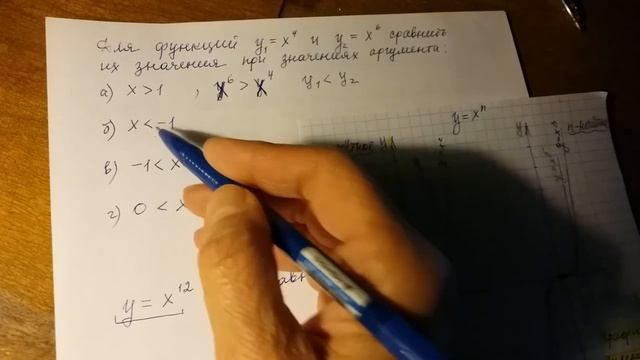 Для функций y₁ = x⁴ и y₂ = x⁶ сравнить
их значения при значениях аргумента:
а) x > 1 , x⁶ > x⁴ y₁ < y₂
б) x < -1
в) -1 < x
г) 0 < x
y = x¹²
y = xⁿ